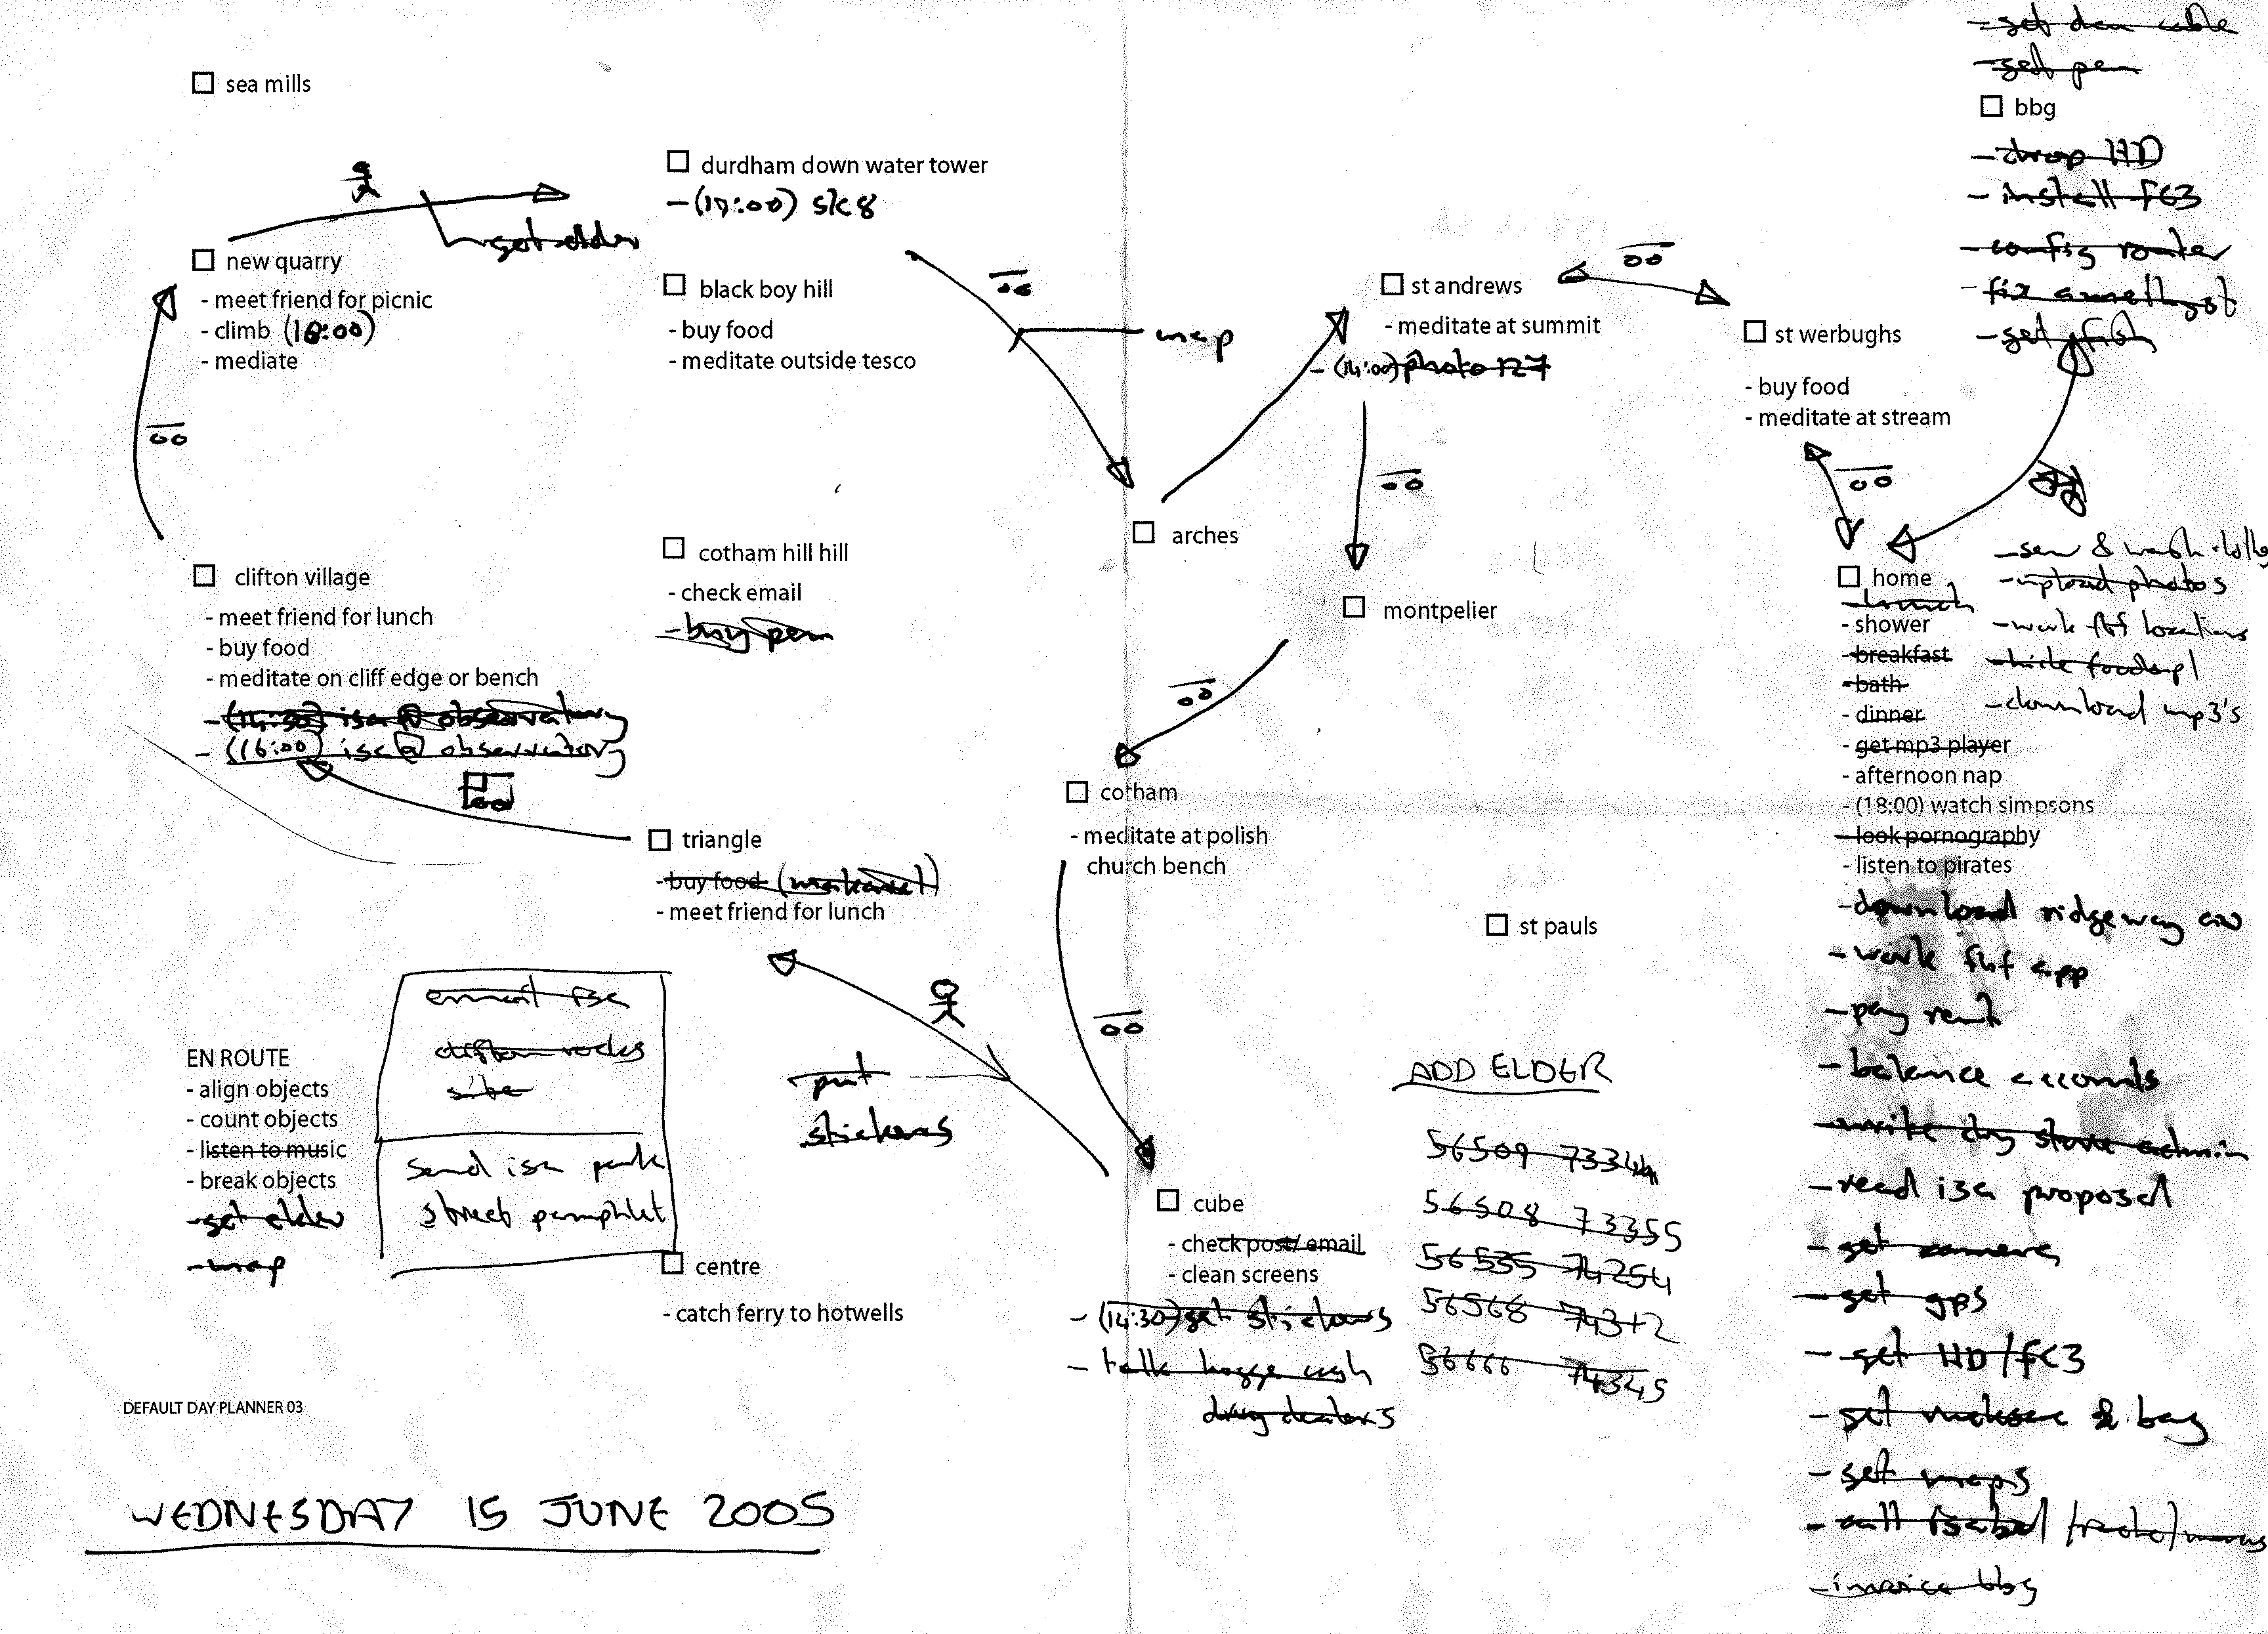 sea mills
durdham down water tower
-(17:00) sk8
get elder
new quarry
- meet friend for picnic
- climb (18:00)
- mediate
black boy hill
- buy food
- meditate outside tesco
map
st andrews
- meditate at summit
-(14:00) photo 127
st werbughs
- buy food
- meditate at stream
- get pen
bbg
- drop HD
- install FC3
- config router
- get fish
arches
montpelier
clifton village
- meet friend for lunch
- buy food
- meditate on cliff edge or bench
- (14:30) isa @ observatory
- (16:00) isa @ observatory
cotham hill hill
- check email
- buy pen
home
- lunch
- shower
- breakfast
- bath
- dinner
- get mp3 player
- afternoon nap
- (18:00) watch simpsons
- look pornography
- listen to pirates
- download ridgeway
- work fbf app
- pay rent
- balance accounts
- write day store admin
- read isa proposal
- get camera
- get gps
- get HD/FC3
- get & bag
- get maps
- call isabel
- invoice bbg
- sew & wash
- upload photos
- work fbf locations
- download mp3's
triangle
- buy food
- meet friend for lunch
cotham
- meditate at polish
church bench
st pauls
put
stickers
email isa
clifton rocks
site
send isa park
street pamphlet
EN ROUTE
- align objects
- count objects
- listen to music
- break objects
- get elder
- map
centre
- catch ferry to hotwells
cube
- check post/ email
- clean screens
- (14:30) get stickers
- talk hogge with
drug dealers
ADD ELDER
56509 73344
56508 73355
56535 74254
56568 74312
56666 74345
DEFAULT DAY PLANNER 03
WEDNESDAY 15 JUNE 2005